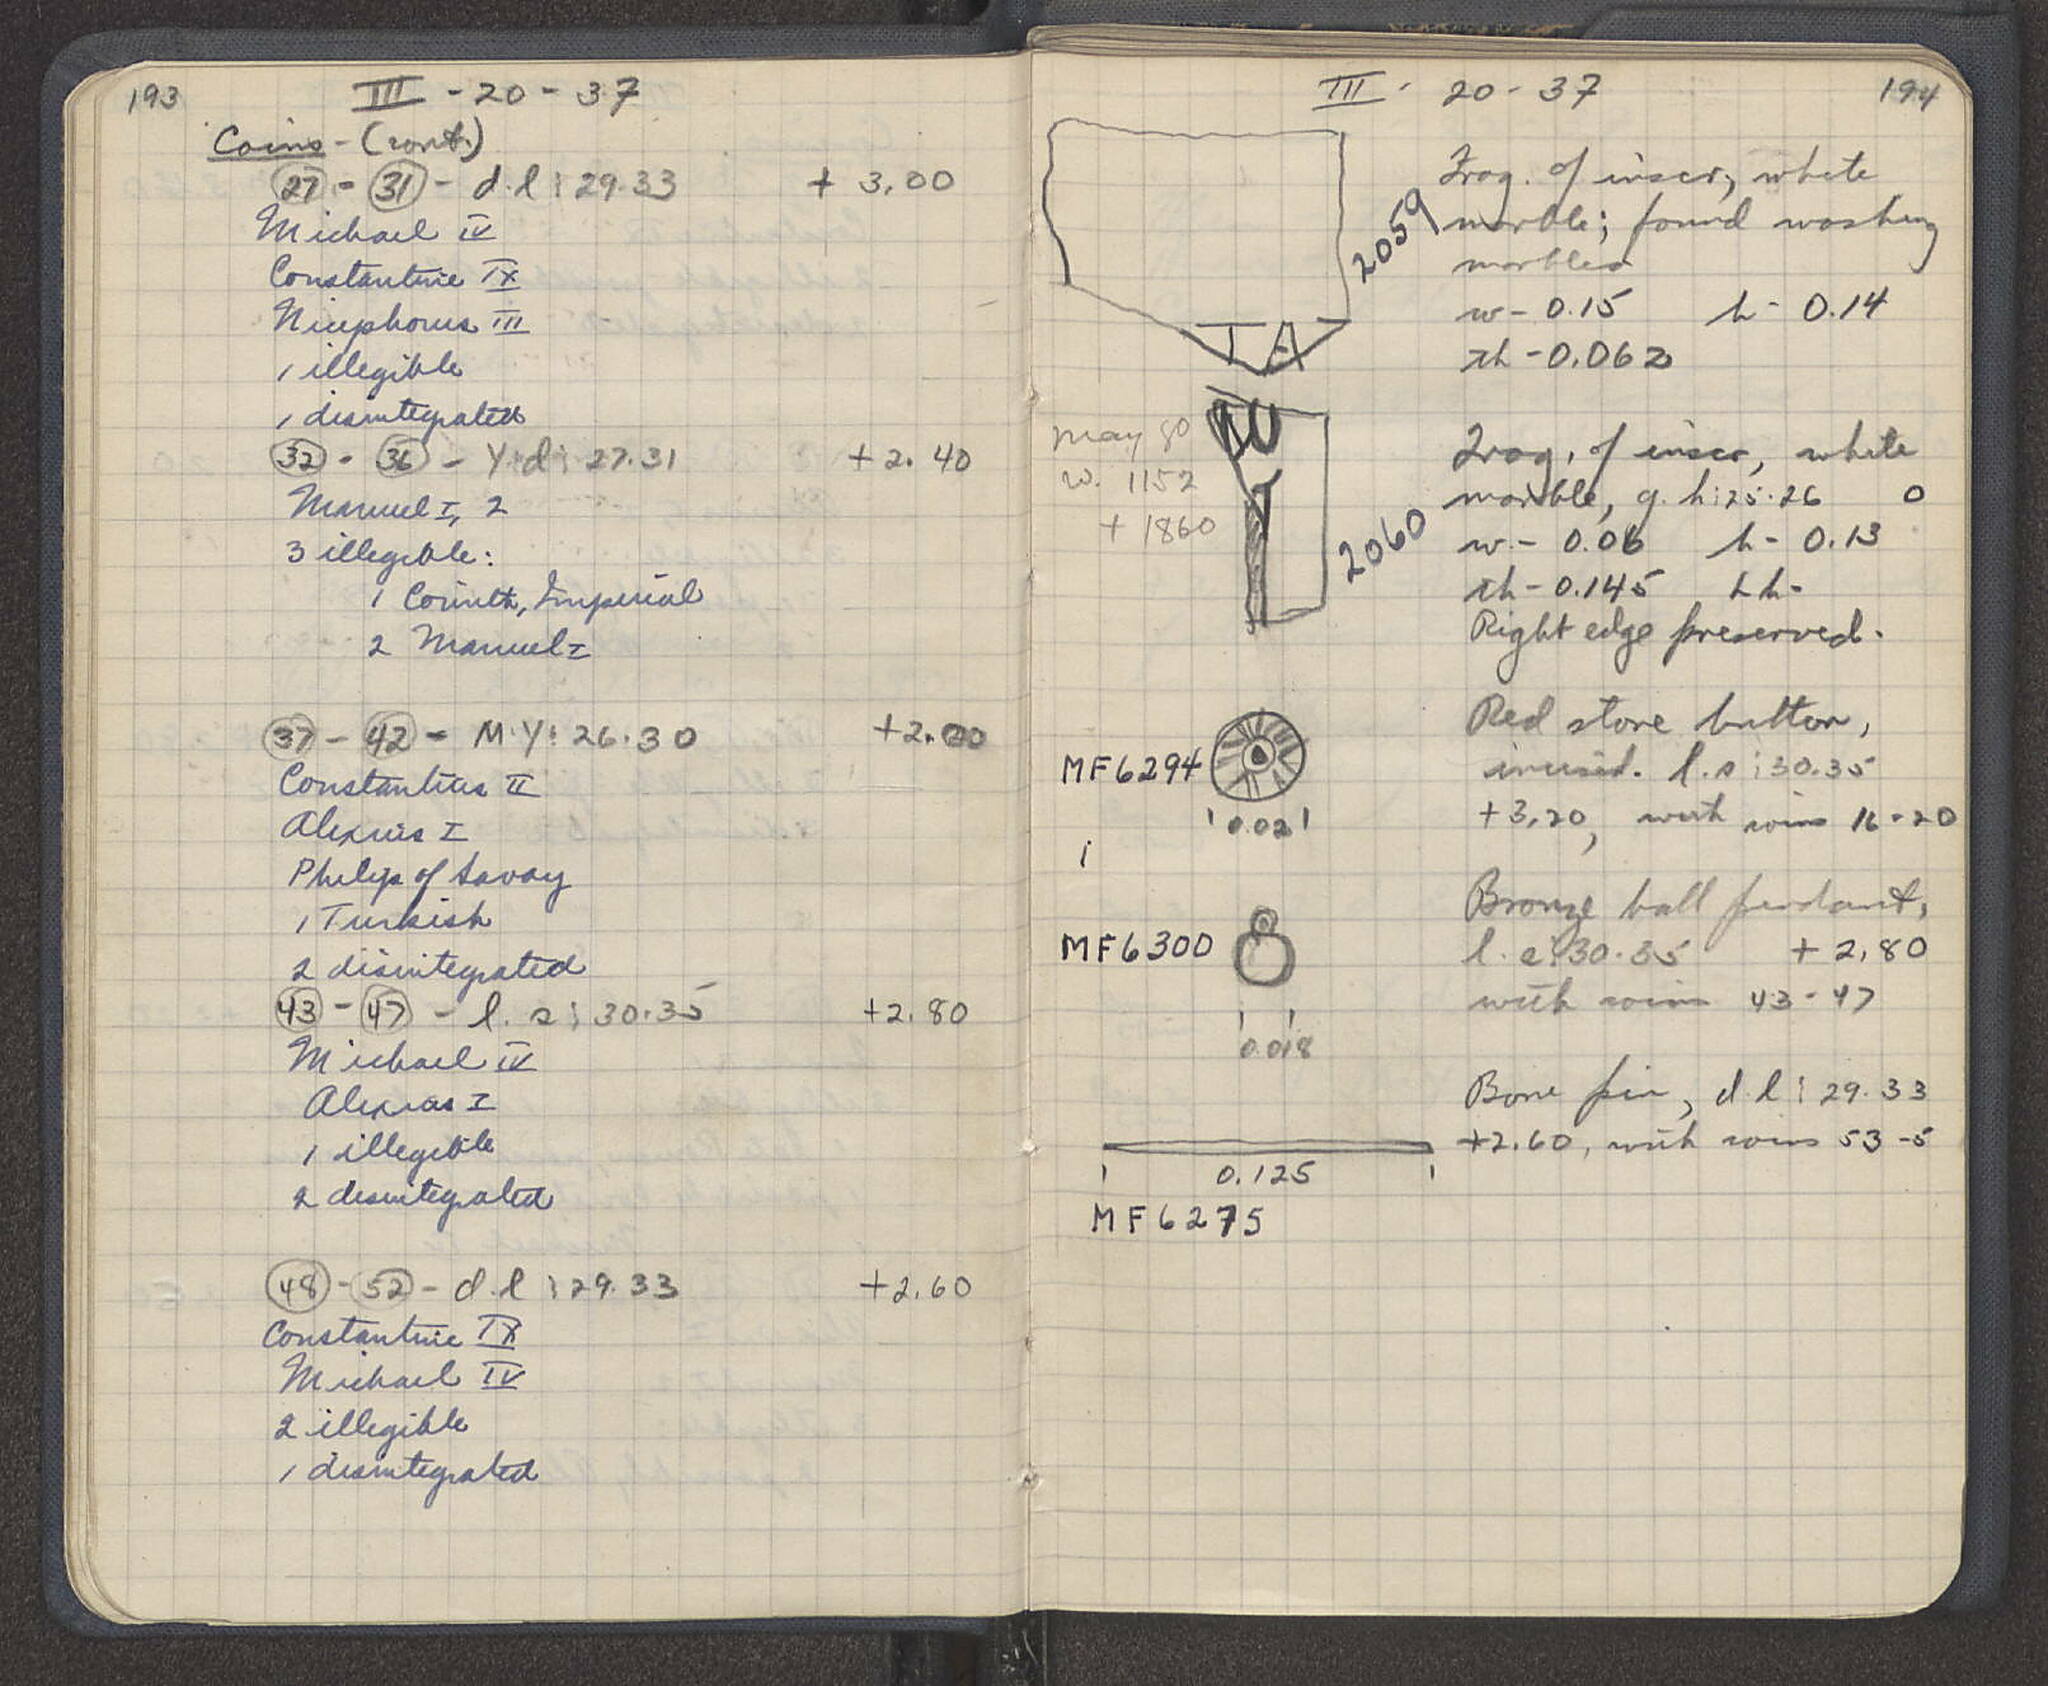 193
III - 20 - 37
Coins - (cont.)
27 - 31 - d.l : 29.33 + 3.00
Michael IV
Constantine IX
Nicephorus III
1 illegible
1 disintegrated
32 - 36 - Y.d : 27.31 + 2.40
Manuel I, 2
3 illegible:
1 Corinth, Imperial
2 Manuel I
37 - 42 - M.Y : 26.30 +2.00
Constantius II
Alexius I
Philip of Savoy
1 Turkish
2 disintegrated
43 - 47 - l. s : 30.35 +2.80
Michael IV
Alexius I
1 illegible
2 disintegrated
48 - 52 - d.l : 29.33 +2.60
Constantine IX
Michael IV
2 illegible
1 disintegrated
III - 20 - 37
194
Frag. of inscr, white
marble; found washing
marbles
w - 0.15 h - 0.14
th - 0.062
2059
TA
May 80
w. 1152
+ 1860
2060
Frag. of inscr, white
marble, g. h : 25.26 0
w. - 0.06 h - 0.13
th - 0.145 lh -
Right edge preserved.
MF6294
0.02
Red stone button,
incised. l.s : 30.35
+3.20, with coins 16-20
i
MF6300
0.018
Bronze ball pendant,
l. s : 30.35 + 2.80
with coins 43-47
Bone pin, d.l : 29.33
+2.60, with coins 53-5
0.125
MF6275